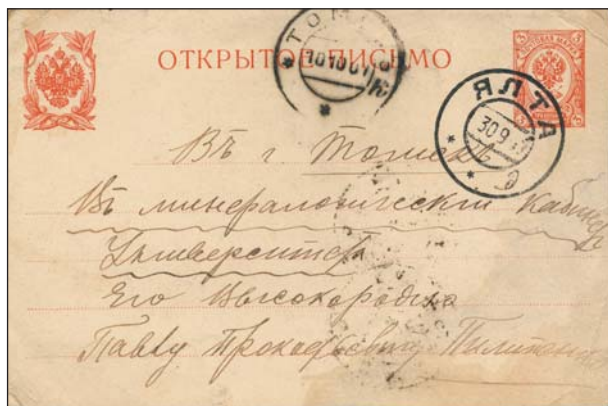 ОТКРЫТОЕ ПИСЬМО
ЯЛТА
30 9
Въ г. Томскъ
Въ минералогическій Кабинетъ
Университета
Его Высокородію
Павлу Прокофьевичу